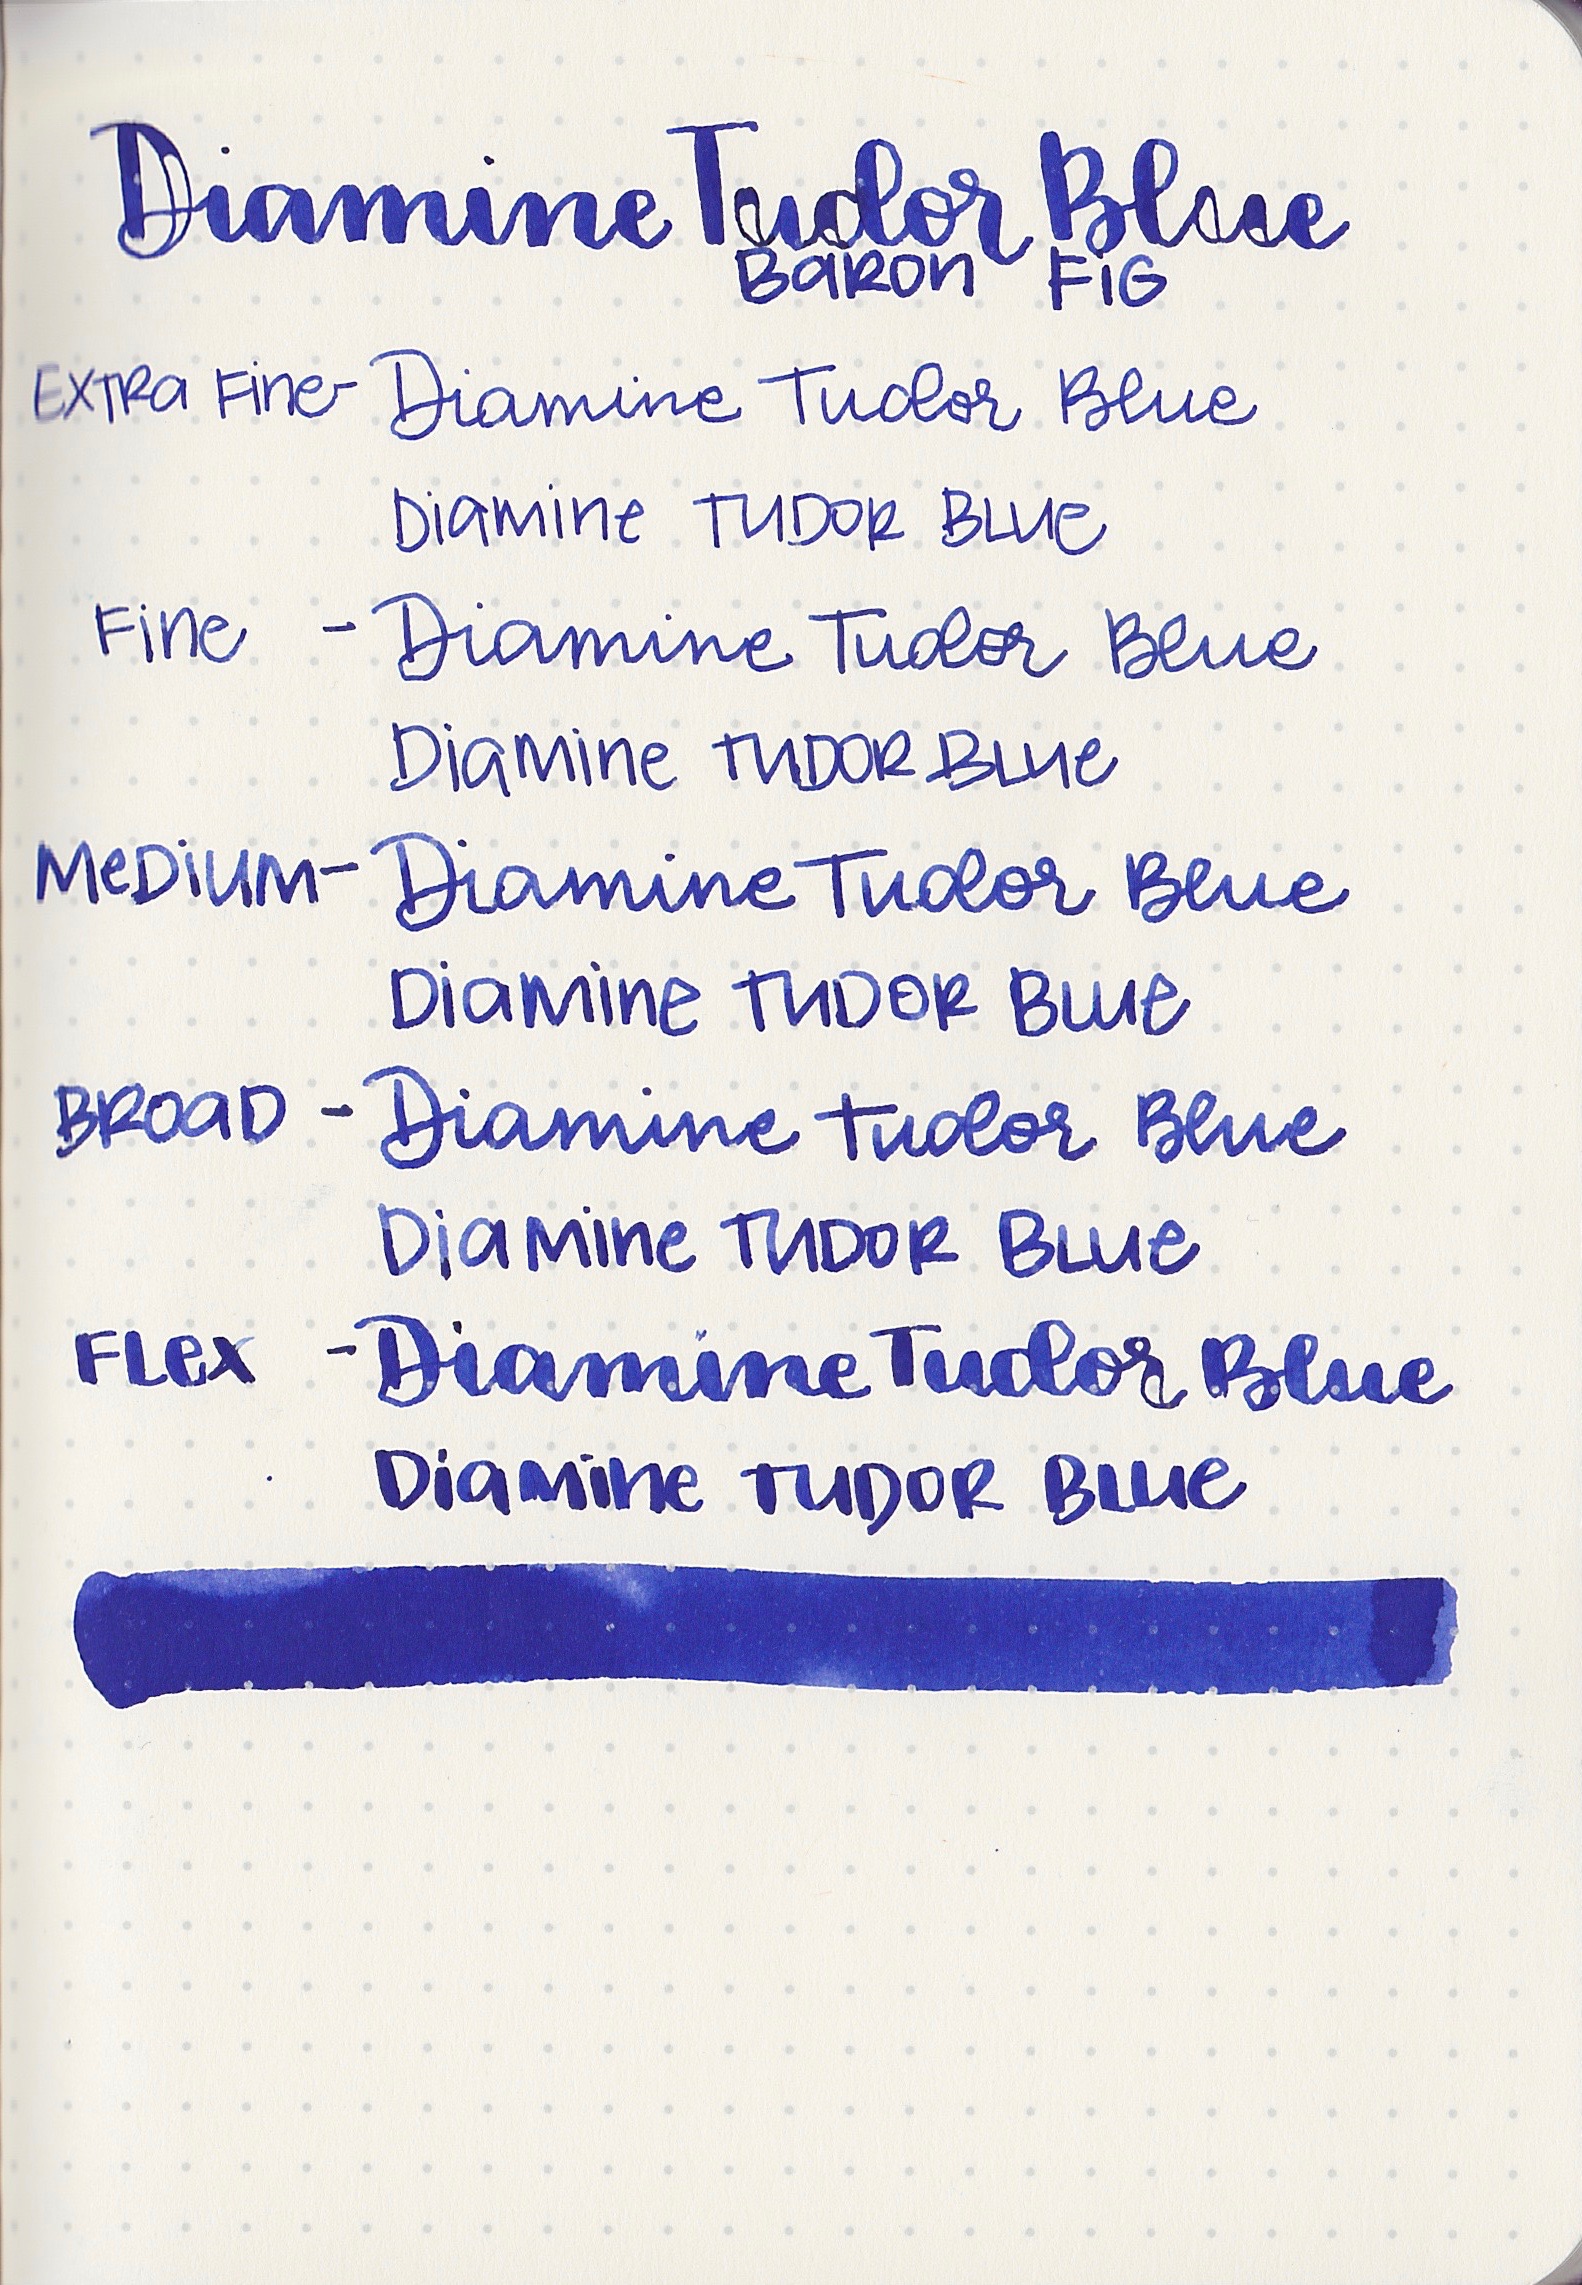 Diamine Tudor Blue
BARON FIG
EXTRA FINE- Diamine Tudor Blue
DIAMINE TUDOR BLUE
FINE - Diamine Tudor Blue
DIAMINE TUDOR BLUE
MEDIUM- Diamine Tudor Blue
DIAMINE TUDOR BLUE
BROAD - Diamine Tudor Blue
DIAMINE TUDOR BLUE
FLEX - Diamine Tudor Blue
DIAMINE TUDOR BLUE